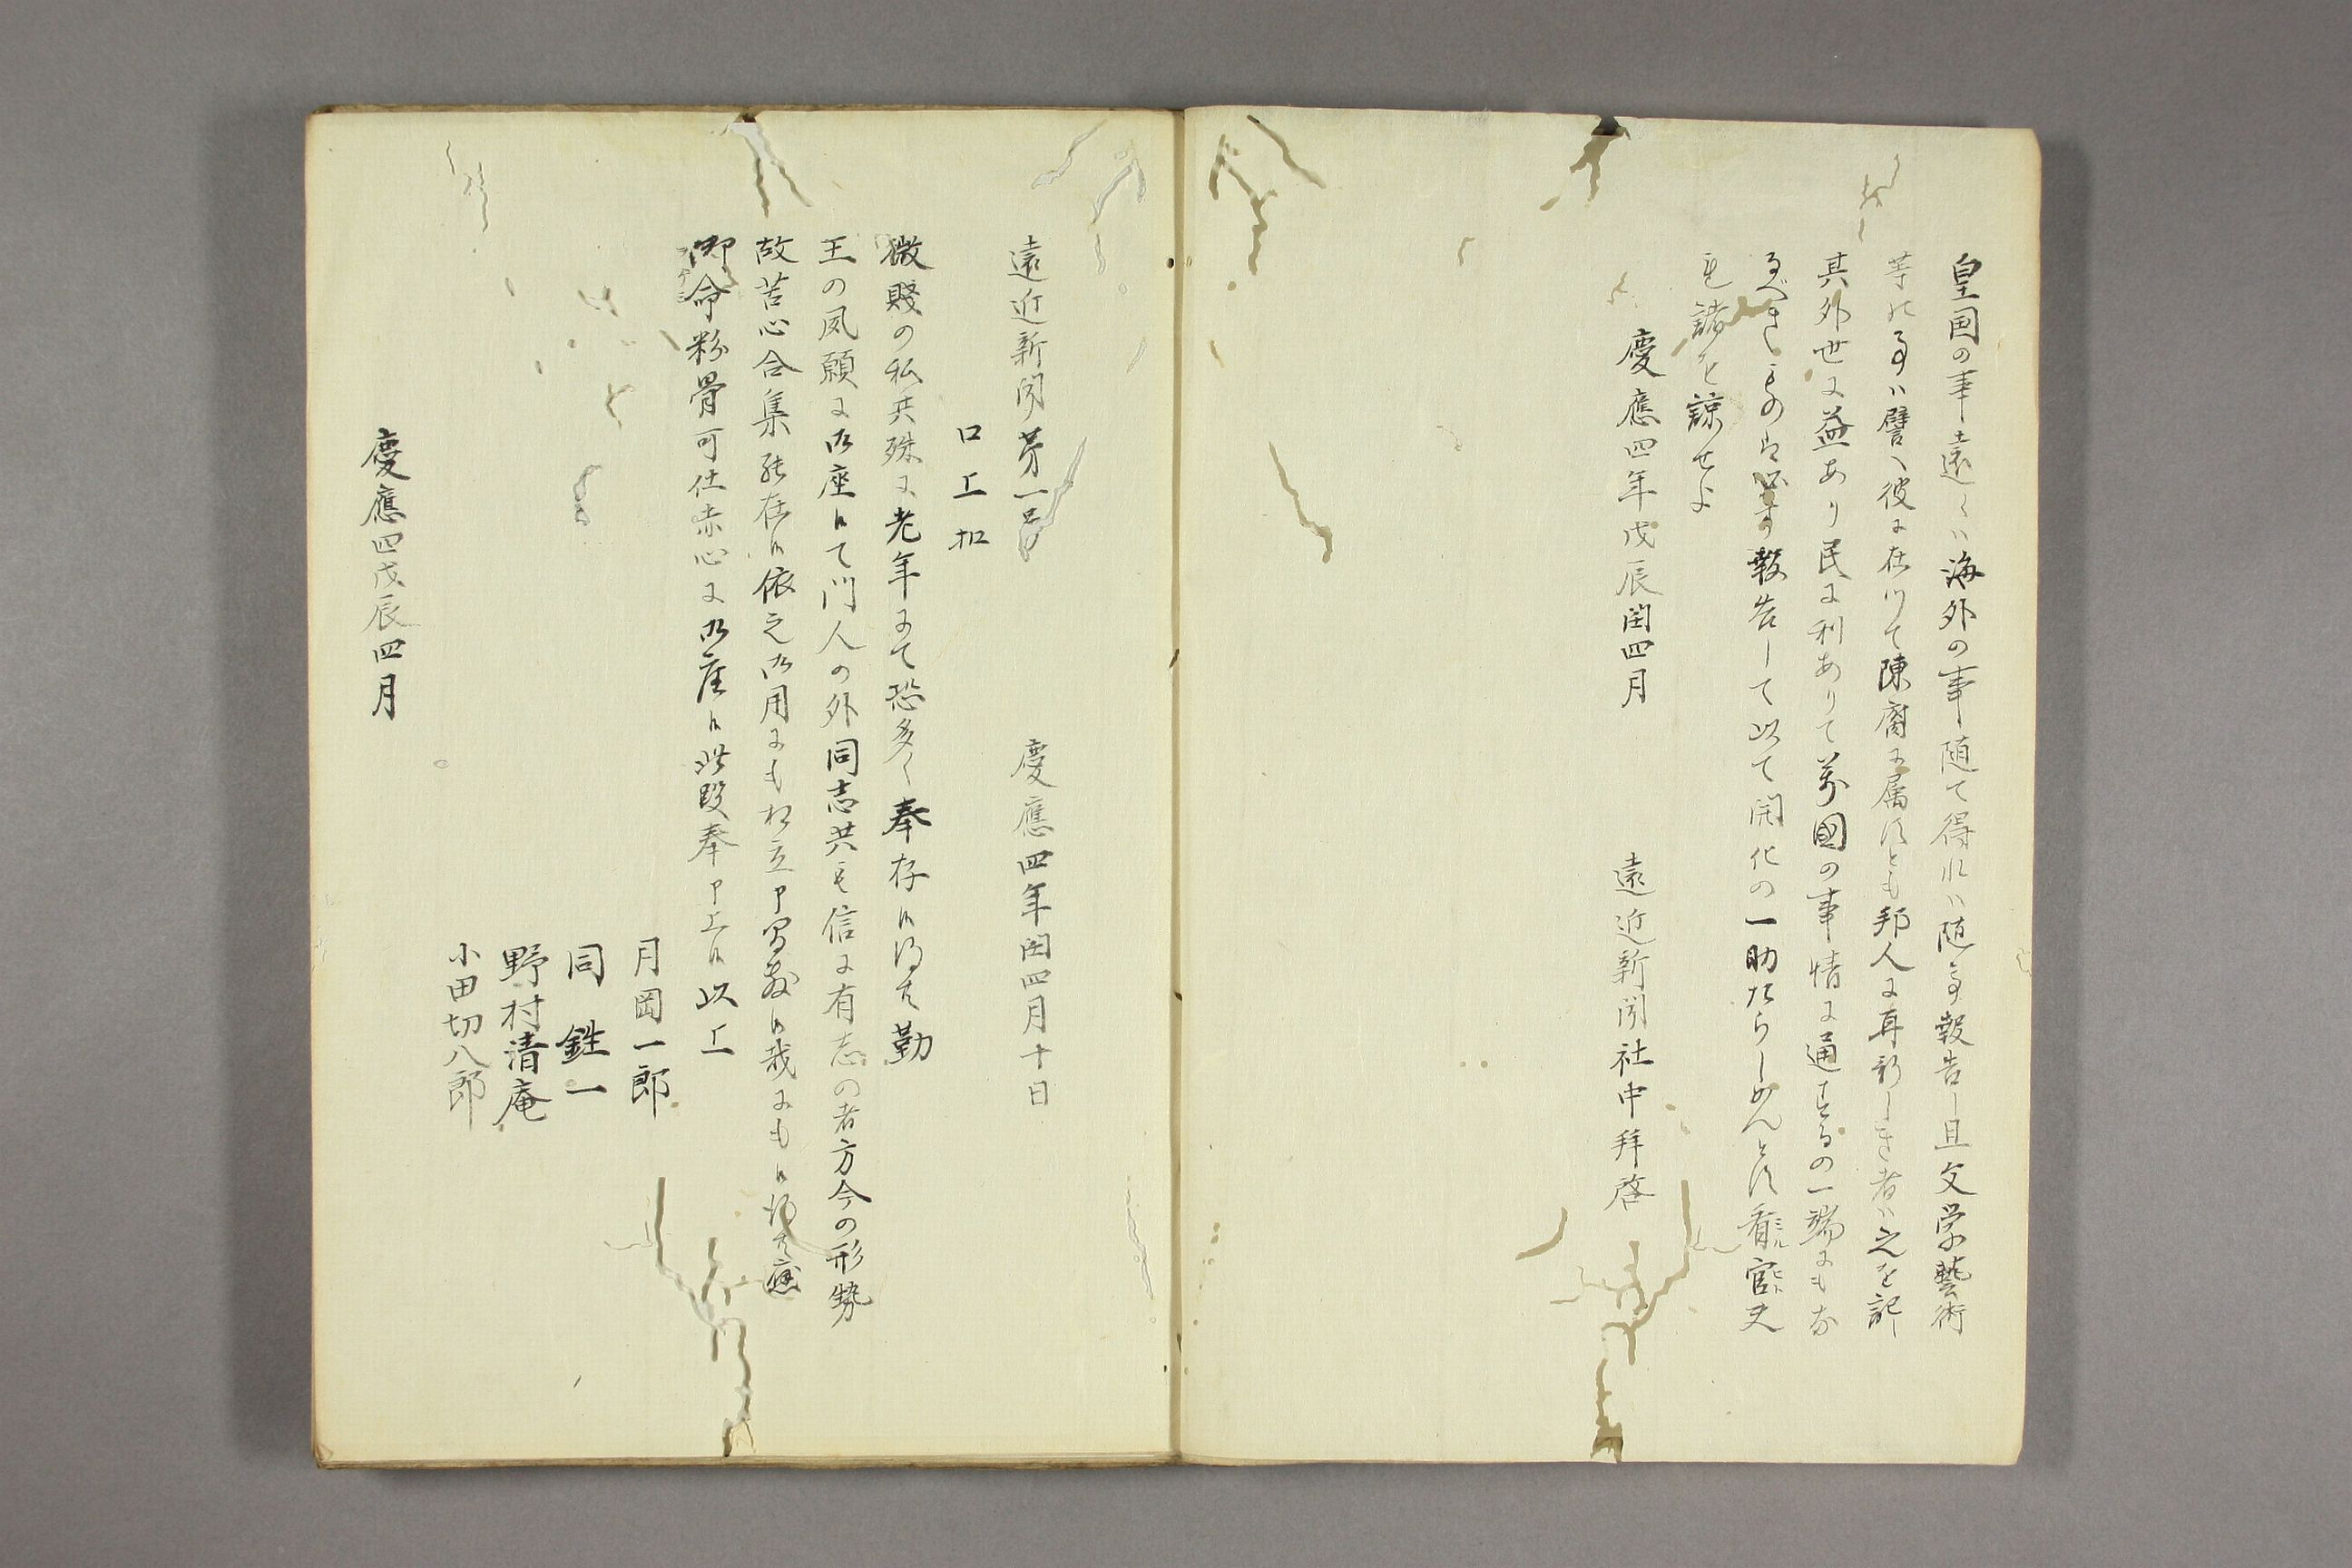 皇国の事遠くハ海外の事随て得れハ随て報告し且文学藝術
等の事ハ譬へ彼に在りて陳腐に属すとも邦人に耳新しき者ハ之を記
其外世に益あり民に利ありて萬國の事情に通ずるの一端にもな
るべきものは必す報告して以て開化の一助たらしめんとす看官ミルヒト夫
も諸を諒せよ
慶應四年戊辰閏四月
遠近新聞社中拜啓
遠近新聞第一号
慶應四年閏四月十日
口上扣
微賤の私共殊に老年にて恐多く奉存候得共勤
王の夙願に御座候て門人の外同志共も信に有志の者方今の形勢
故苦心合集罷在候依之御用にも相立申間敷候哉にも候得共應
御命粉骨可仕赤心に御座候此段奉申上候以上
月岡一郎
同 鉎一
野村清庵
小田切八郎
慶應四戊辰四月